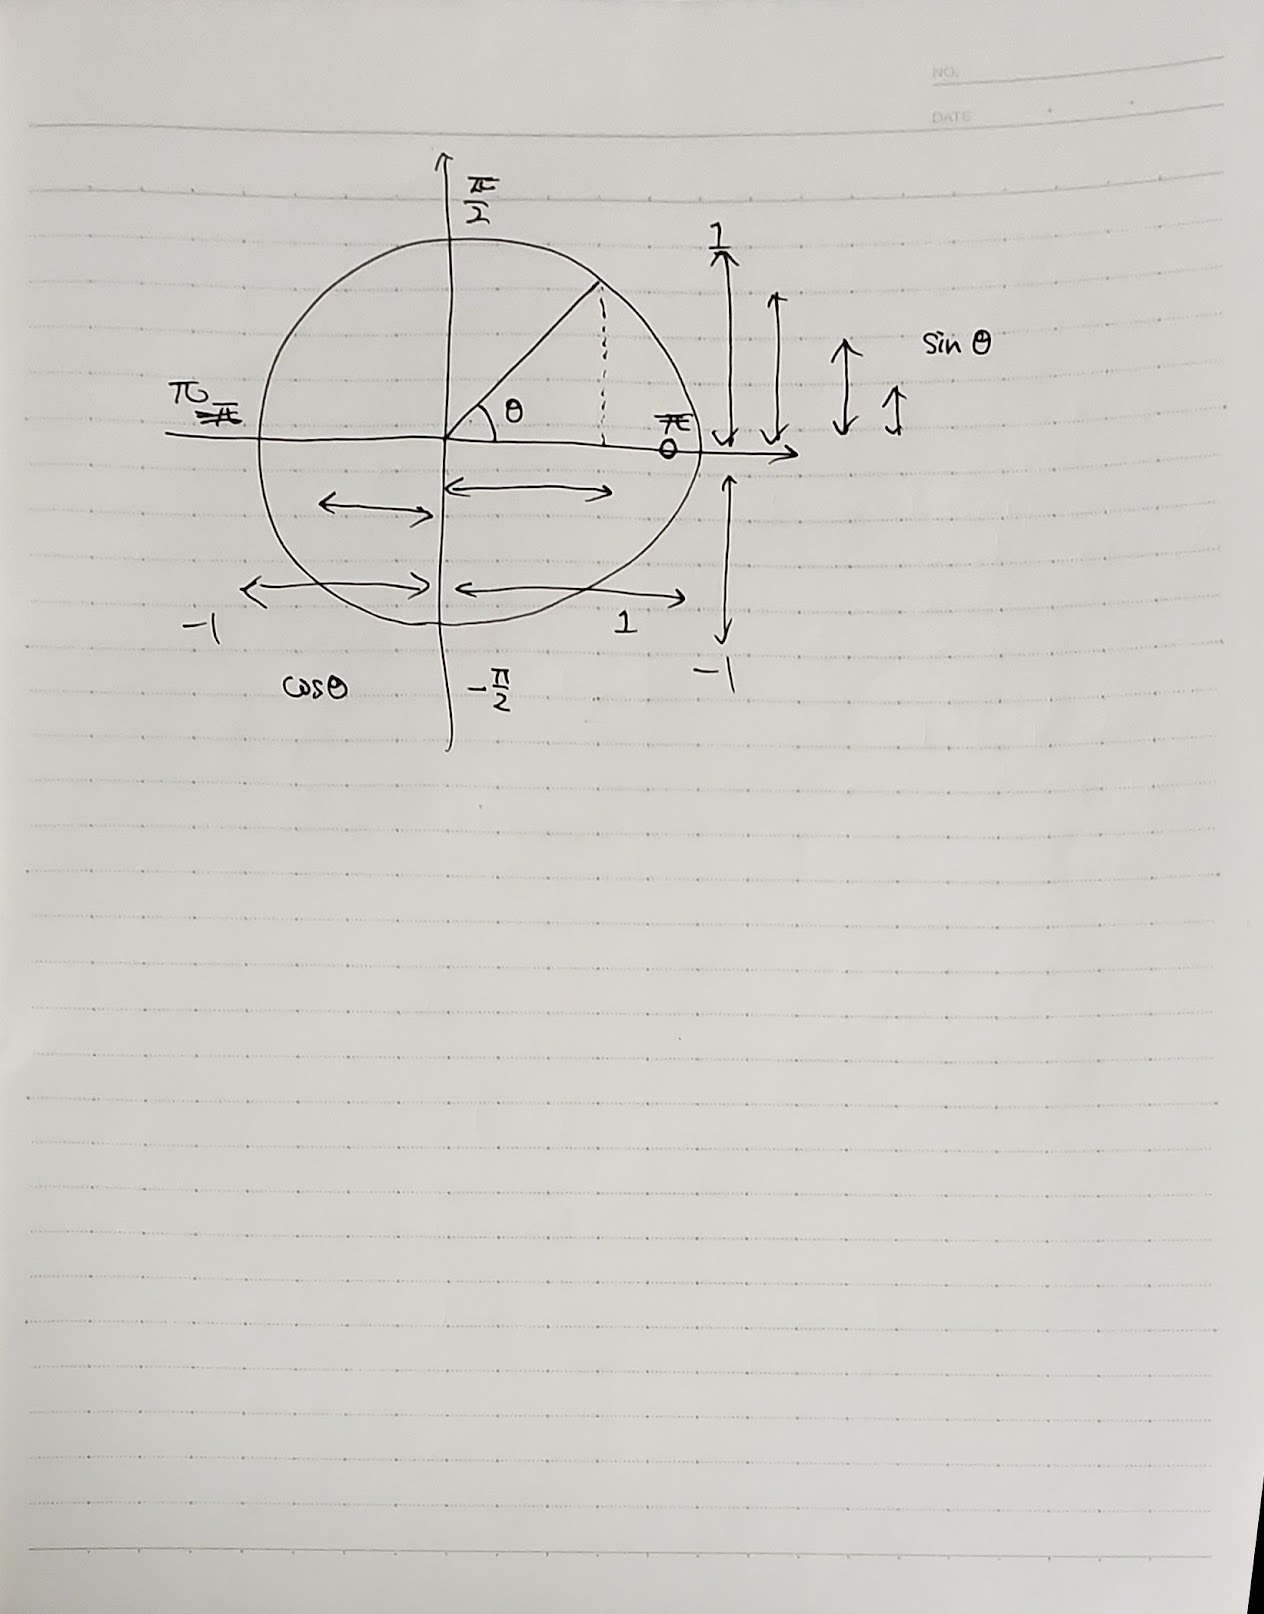 NO.
DATE
π/2
1
sin θ
π
θ
0
-1
1
-1
cosθ
-π/2